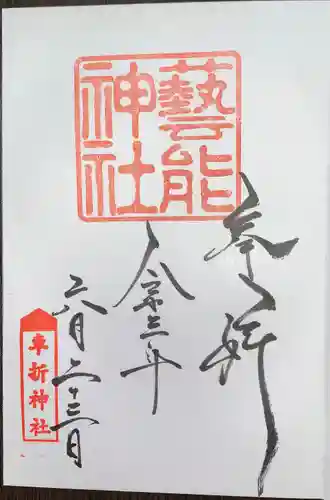 藝能神社
奉拝
令和三年
六月二十三日
車折神社